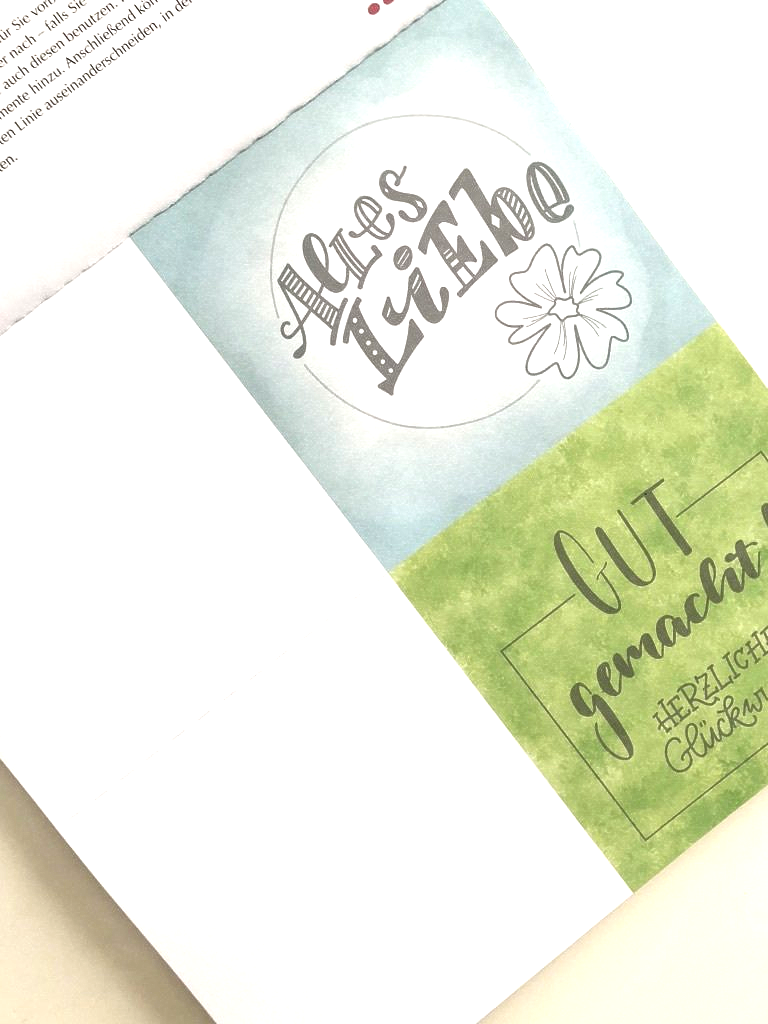 für Sie vor
er nach – falls Sie
auch diesen benutzen.
mente hinzu. Anschließend kön
en Linie auseinanderschneiden, in de
en.
Alles
Liebe
GUT
gemacht
HERZLICHE
Glückw